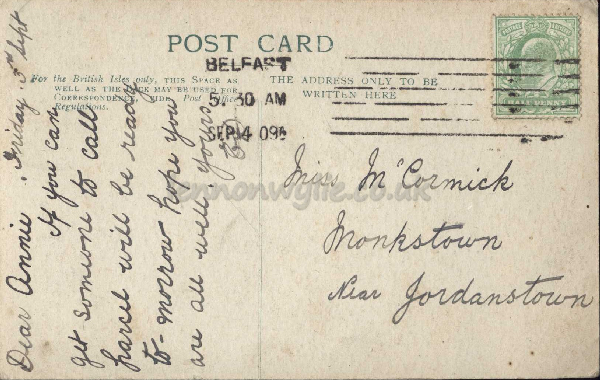 POST CARD
For the British Isles only, THIS SPACE AS
WELL AS THE BACK MAY BE USED FOR
CORRESPONDENCE, Post Office
Regulations.
THE ADDRESS ONLY TO BE
WRITTEN HERE
BELFAST
5 30 AM
SEP 4 09
HALFPENNY
Friday 3rd Sept
Dear Annie
If you can
get someone to call
parcel will be ready
to-morrow hope you
are all well. yours
Miss McCormick
Monkstown
Near Jordanstown
lennonwylie.co.uk